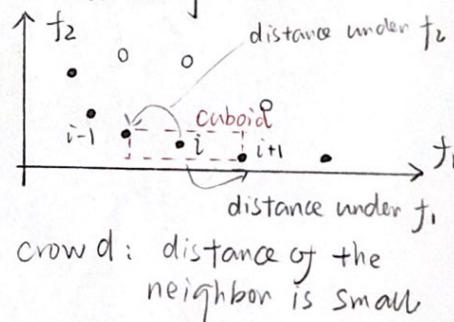 f2
distance under f2
cuboid
i-1
i
i+1
f1
distance under f1
crowd: distance of the
neighbor is small